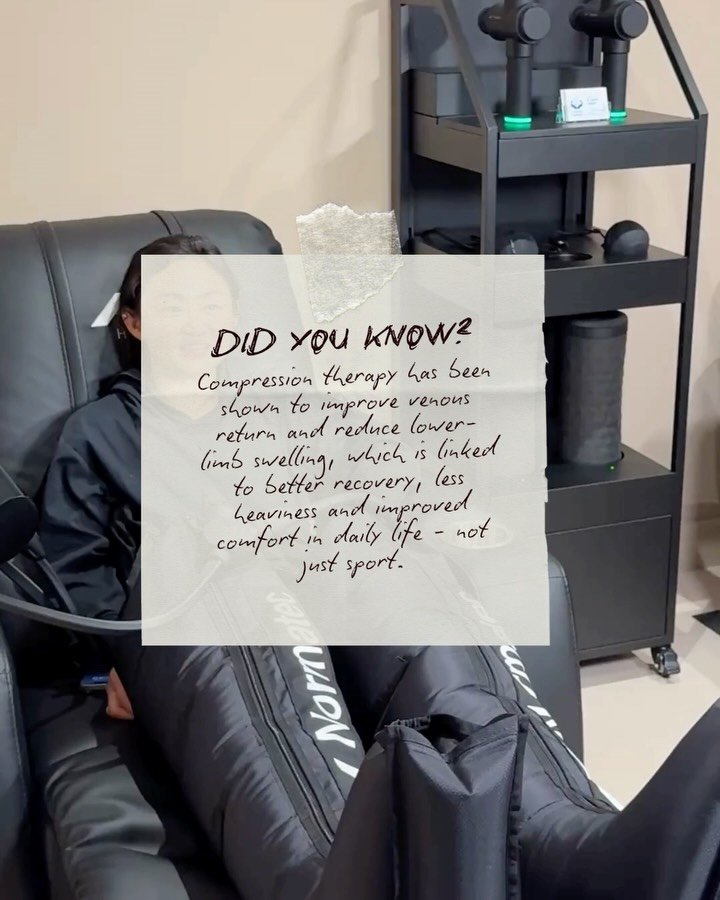 DID YOU KNOW?
Compression therapy has been
shown to improve venous
return and reduce lower-
limb swelling, which is linked
to better recovery, less
heaviness and improved
comfort in daily life - not
just sport.
Normatec